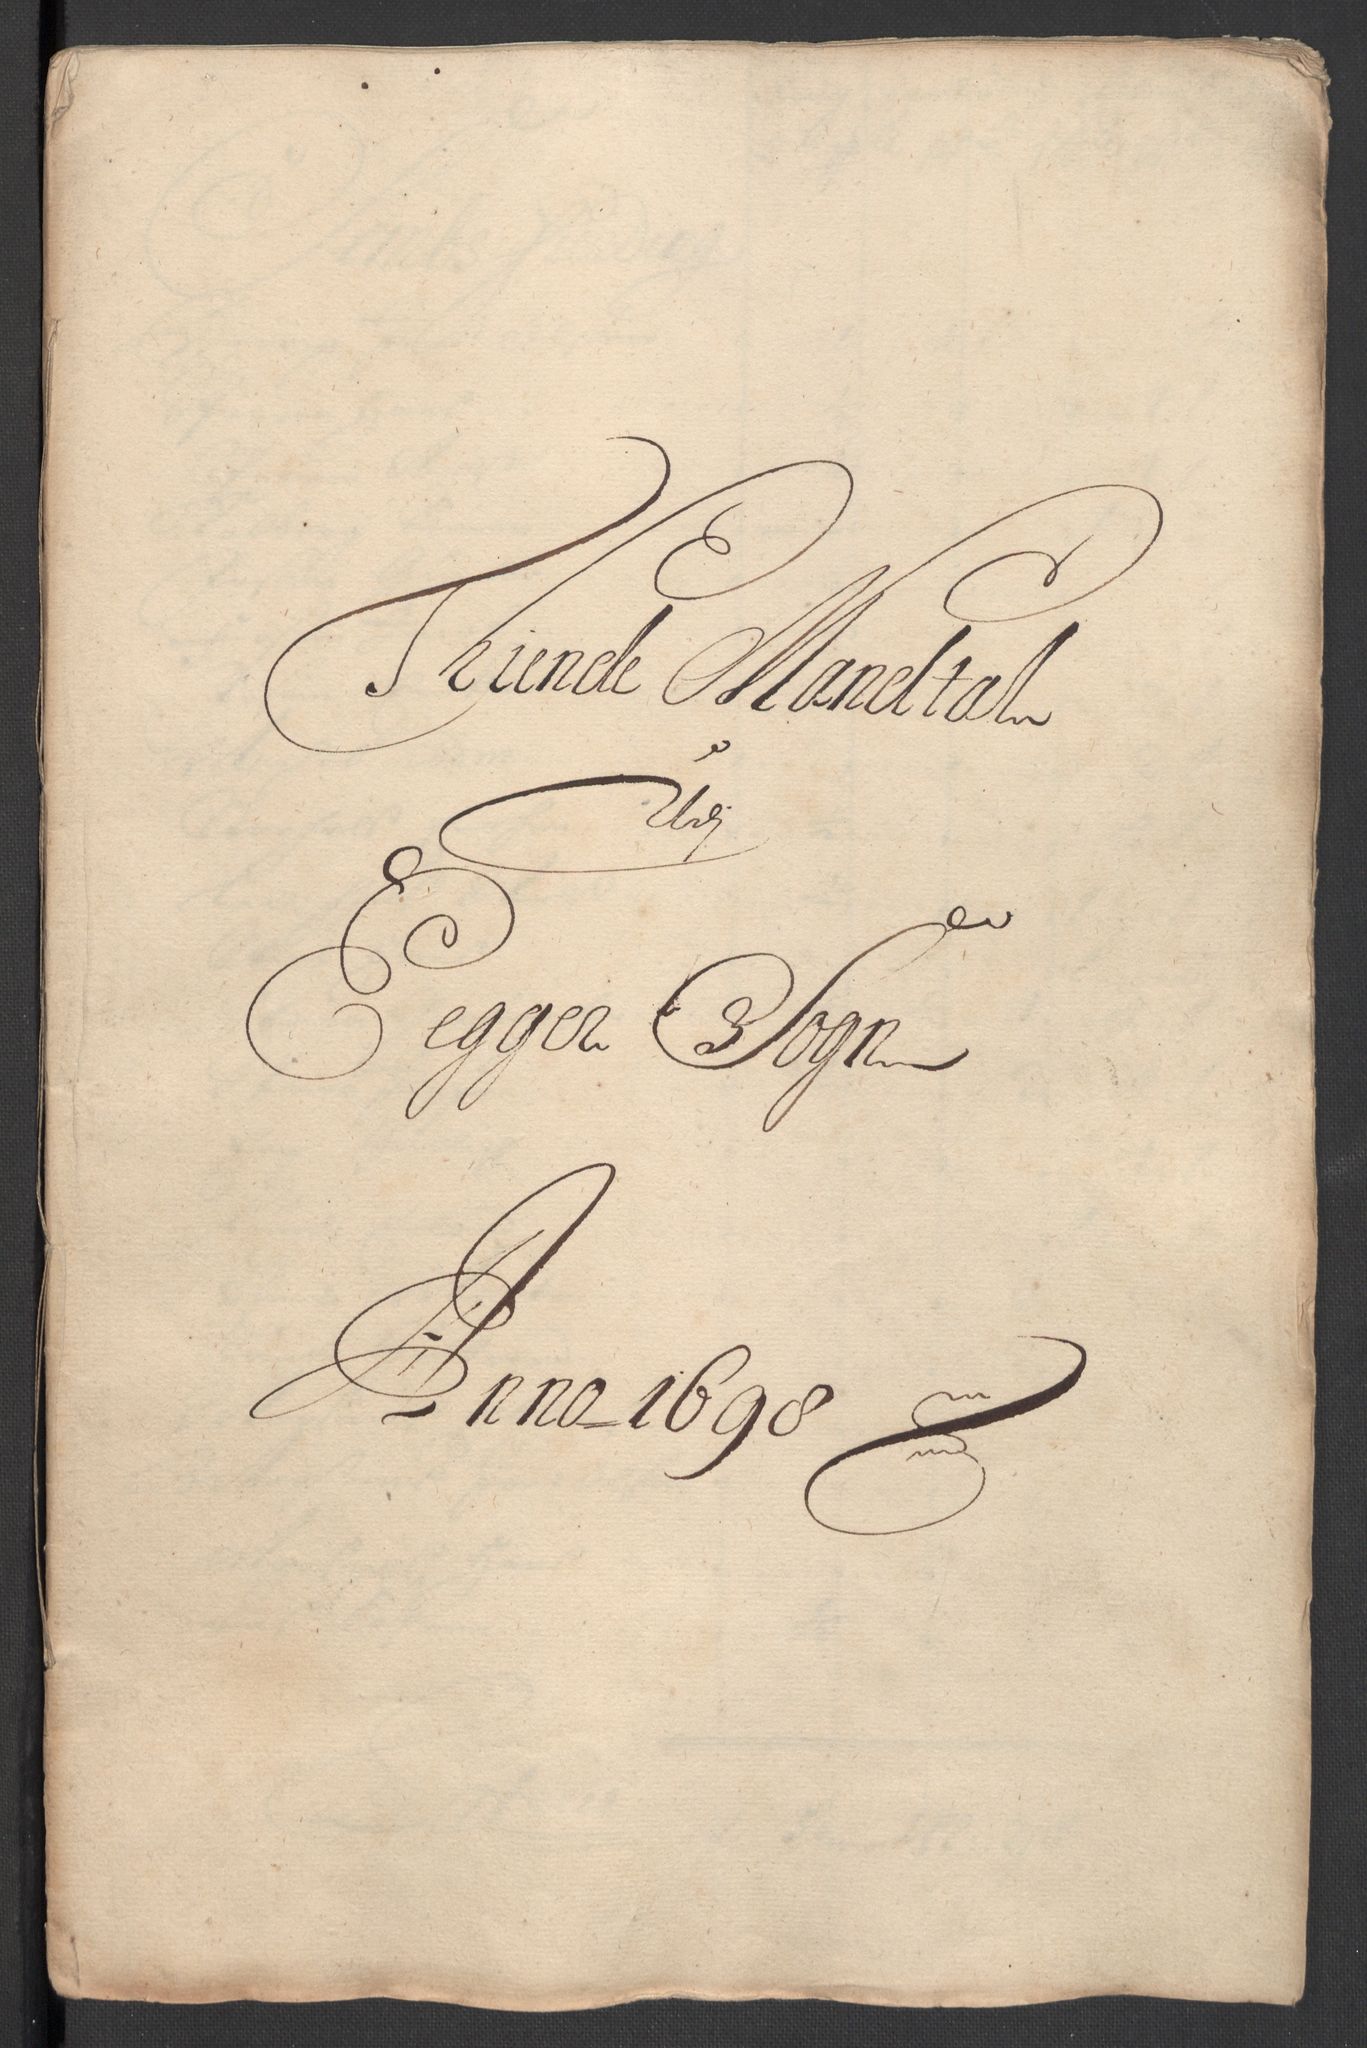 Thiende Mandtal
Udj
Egger Sogn
Anno 1698